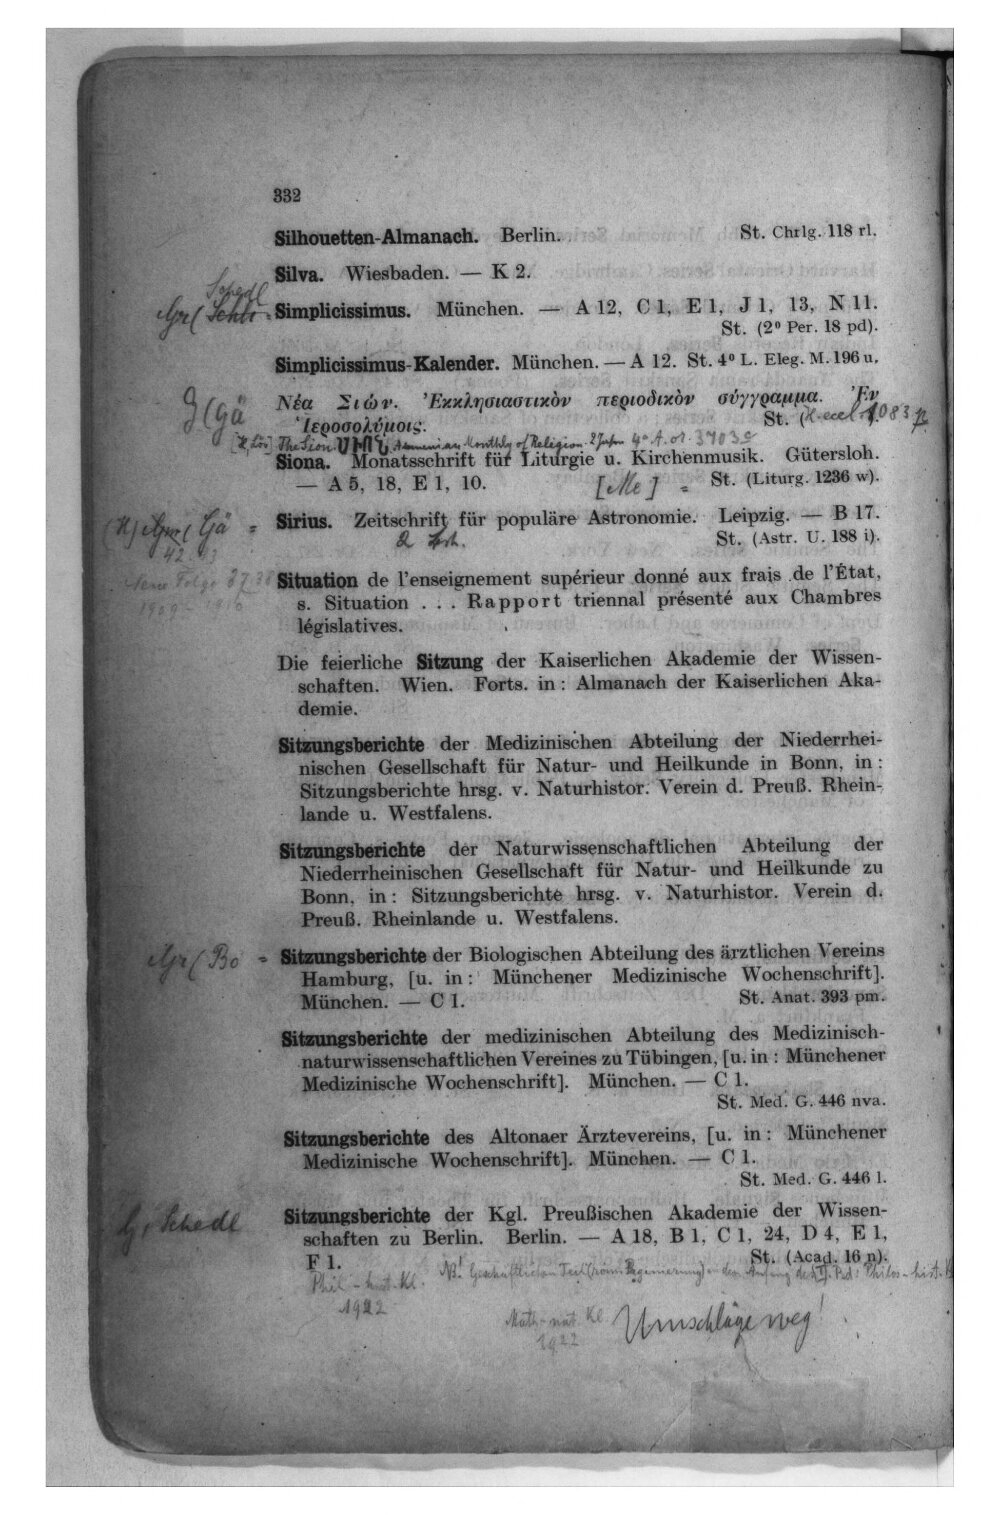 332
Silhouetten-Almanach. Berlin. St. Chrlg. 118 rl.
Silva. Wiesbaden. — K 2.
Schedl
Simplicissimus. München. — A 12, C 1, E 1, J 1, 13, N 11.
St. (2⁰ Per. 18 pd).
Simplicissimus-Kalender. München. — A 12. St. 4⁰ L. Eleg. M. 196 u.
Νέα Σιών. Ἐκκλησιαστικὸν περιοδικὸν σύγγραμμα. Ἐν
Ἱεροσολύμοις. St. (H. eccl. 1083 p
The Sion ՍԻՈՆ Armenian Monthly of Religion 4⁰ A. or. 3703
Siona. Monatsschrift für Liturgie u. Kirchenmusik. Gütersloh.
— A 5, 18, E 1, 10. [Me] = St. (Liturg. 1236 w).
(N) Gr ( Gä = Sirius. Zeitschrift für populäre Astronomie. Leipzig. — B 17.
St. (Astr. U. 188 i).
Neue Folge 37.38 Situation de l'enseignement supérieur donné aux frais de l'État,
1909-1910 s. Situation . . . Rapport triennal présenté aux Chambres
législatives.
Die feierliche Sitzung der Kaiserlichen Akademie der Wissen-
schaften. Wien. Forts. in : Almanach der Kaiserlichen Aka-
demie.
Sitzungsberichte der Medizinischen Abteilung der Niederrhei-
nischen Gesellschaft für Natur- und Heilkunde in Bonn, in :
Sitzungsberichte hrsg. v. Naturhistor. Verein d. Preuß. Rhein-
lande u. Westfalens.
Sitzungsberichte der Naturwissenschaftlichen Abteilung der
Niederrheinischen Gesellschaft für Natur- und Heilkunde zu
Bonn, in : Sitzungsberichte hrsg. v. Naturhistor. Verein d.
Preuß. Rheinlande u. Westfalens.
Gr ( Bo = Sitzungsberichte der Biologischen Abteilung des ärztlichen Vereins
Hamburg, [u. in : Münchener Medizinische Wochenschrift].
München. — C 1. St. Anat. 393 pm.
Sitzungsberichte der medizinischen Abteilung des Medizinisch-
naturwissenschaftlichen Vereines zu Tübingen, [u. in : Münchener
Medizinische Wochenschrift]. München. — C 1.
St. Med. G. 446 nva.
Sitzungsberichte des Altonaer Ärztevereins, [u. in : Münchener
Medizinische Wochenschrift]. München. — C 1.
St. Med. G. 446 l.
Schedl Sitzungsberichte der Kgl. Preußischen Akademie der Wissen-
schaften zu Berlin. Berlin. — A 18, B 1, C 1, 24, D 4, E 1,
F 1. St. (Acad. 16 n).
Phil-hist. Kl. NB! Geschäftlichen Teil (röm. Paginierung) an den Anfang des II. Bd: Philos-hist.
1922
Math-nat. Kl Umschläge weg!
1922